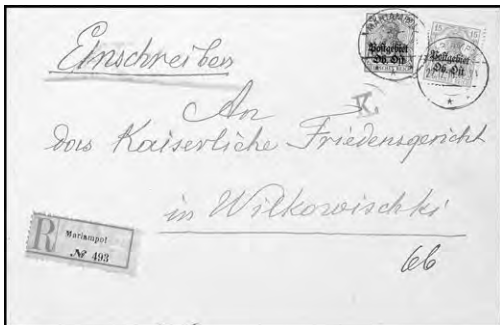 Einschreiben
MARIAMPOL
Postgebiet
Ob. Ost
15 15
Postgebiet
Ob. Ost
An
das Kaiserliche Friedensgericht
in Wilkowischki
66
R
Mariampol
№ 493